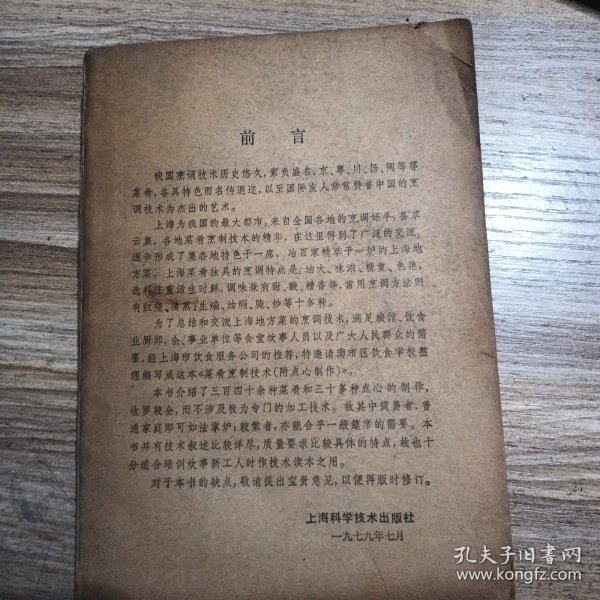 前言
我国烹调技术历史悠久,素负盛名,京、粤、川、扬、闽等等
菜肴,各具特色而名传遐迩,以至国际友人常常赞誉中国的烹
调技术为杰出的艺术。
上海为我国的最大都市,来自全国各地的烹调好手,荟萃
云集,各地菜肴烹制技术的精华,在这里得到了广泛的交流,
逐步形成了集各地特色于一席,冶百家精萃于一炉的上海地
方菜。上海菜肴独具的烹调特点是:油大、味浓、糖重、色艳,
选料注重活生时鲜;调味兼有甜、酸、糟香等,常用烹调方法则
有红烧、清蒸、生煸、油焖、腌、炒等十多种。
为了总结和交流上海地方菜的烹调技术,满足旅馆、饮食
业厨师,企、事业单位等食堂炊事人员以及广大人民群众的需
要,经上海市饮食服务公司的推荐,特邀请南市区饮食学校整
理编写成这本《菜肴烹制技术(附点心制作)》。
本书介绍了三百四十余种菜肴和三十多种点心的制作,
收罗较全,而不涉及极为专门的加工技术。故其中简易者,普
通家庭即可如法掌炉,较繁者,亦能合乎一般筵席的需要。本
书并有技术叙述比较详尽,质量要求比较具体的特点,故也十
分适合培训炊事新工人时作技术读本之用。
对于本书的缺点,敬请提出宝贵意见,以便再版时修订。
上海科学技术出版社
一九七九年七月
孔夫子旧书网
www.kongfz.com